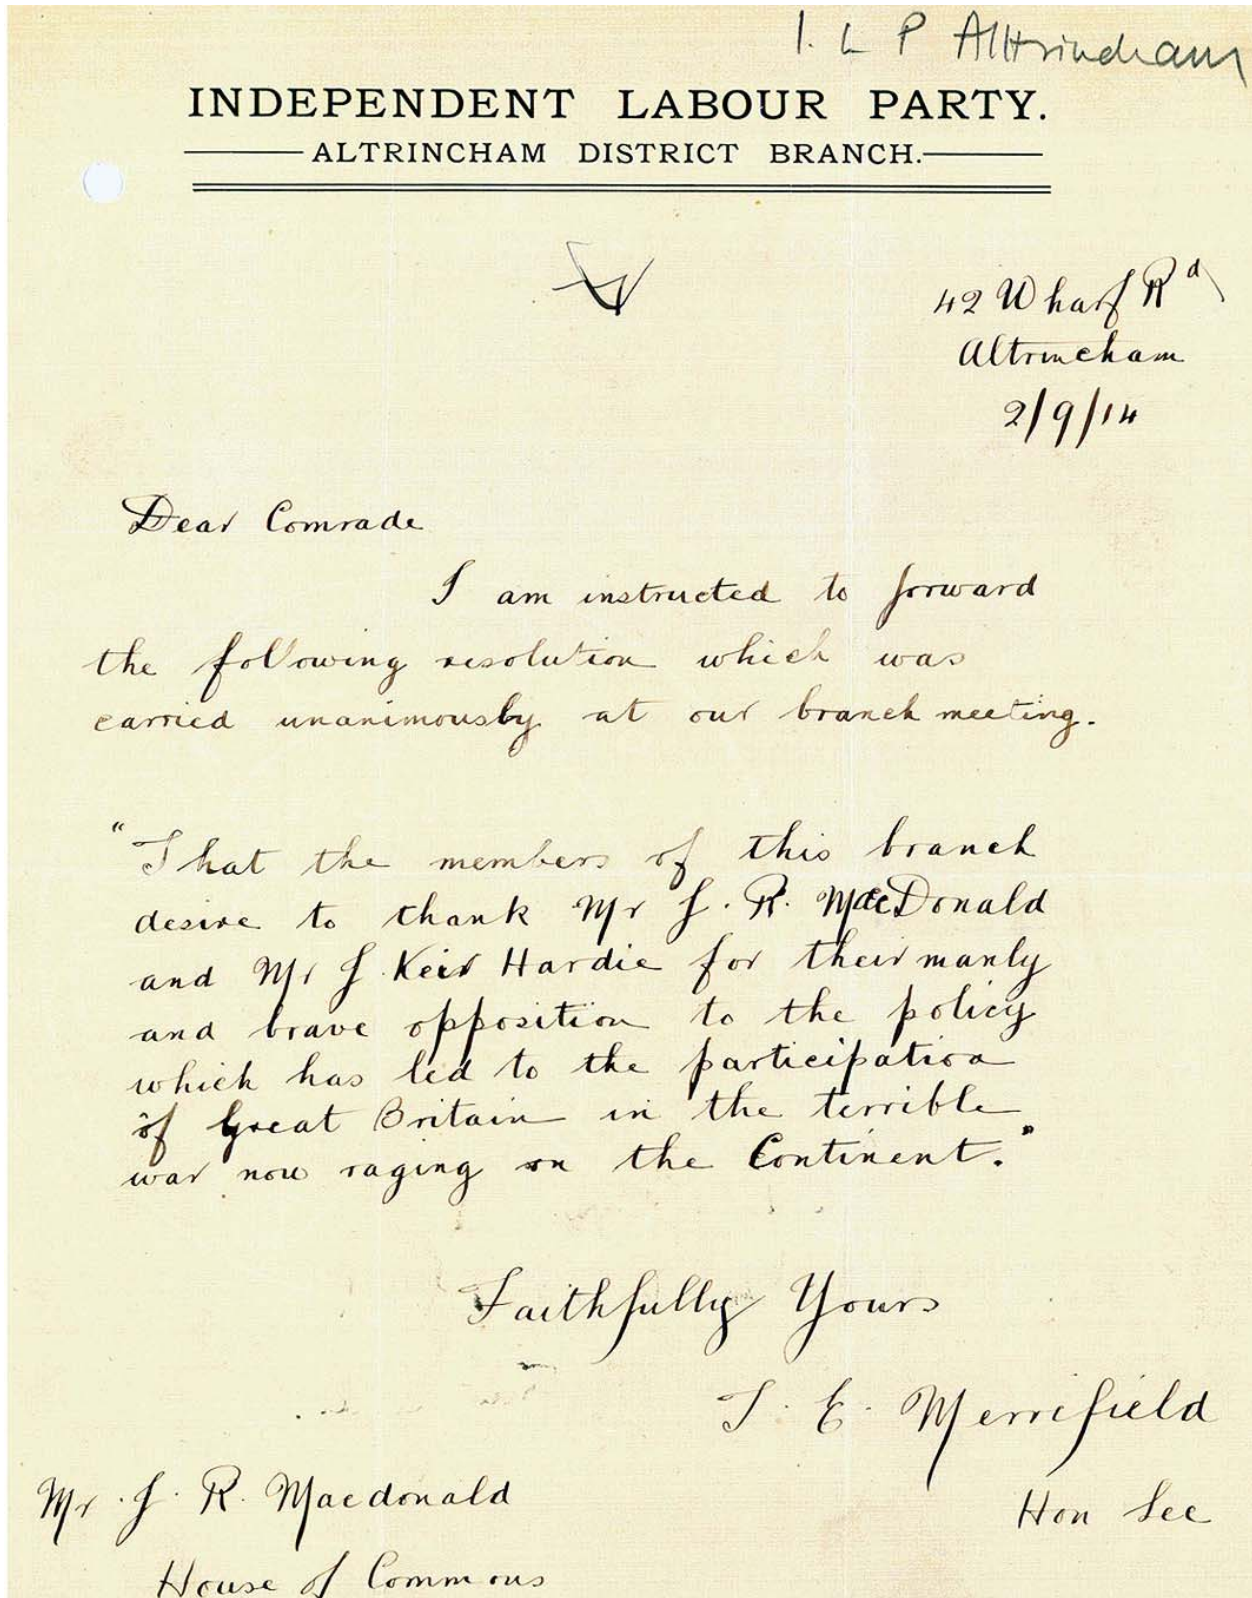 I. L P Altrincham
INDEPENDENT LABOUR PARTY.
ALTRINCHAM DISTRICT BRANCH.
42 Wharf Rd
Altrincham
2/9/14
Dear Comrade
I am instructed to forward
the following resolution which was
carried unanimously at our branch meeting.
"That the members of this branch
desire to thank Mr J. R. MacDonald
and Mr J. Keir Hardie for their manly
and brave opposition to the policy
which has led to the participation
of Great Britain in the terrible
war now raging on the Continent."
Faithfully Yours
T. E. Merrifield
Hon Sec
Mr. J. R. Macdonald
House of Commons